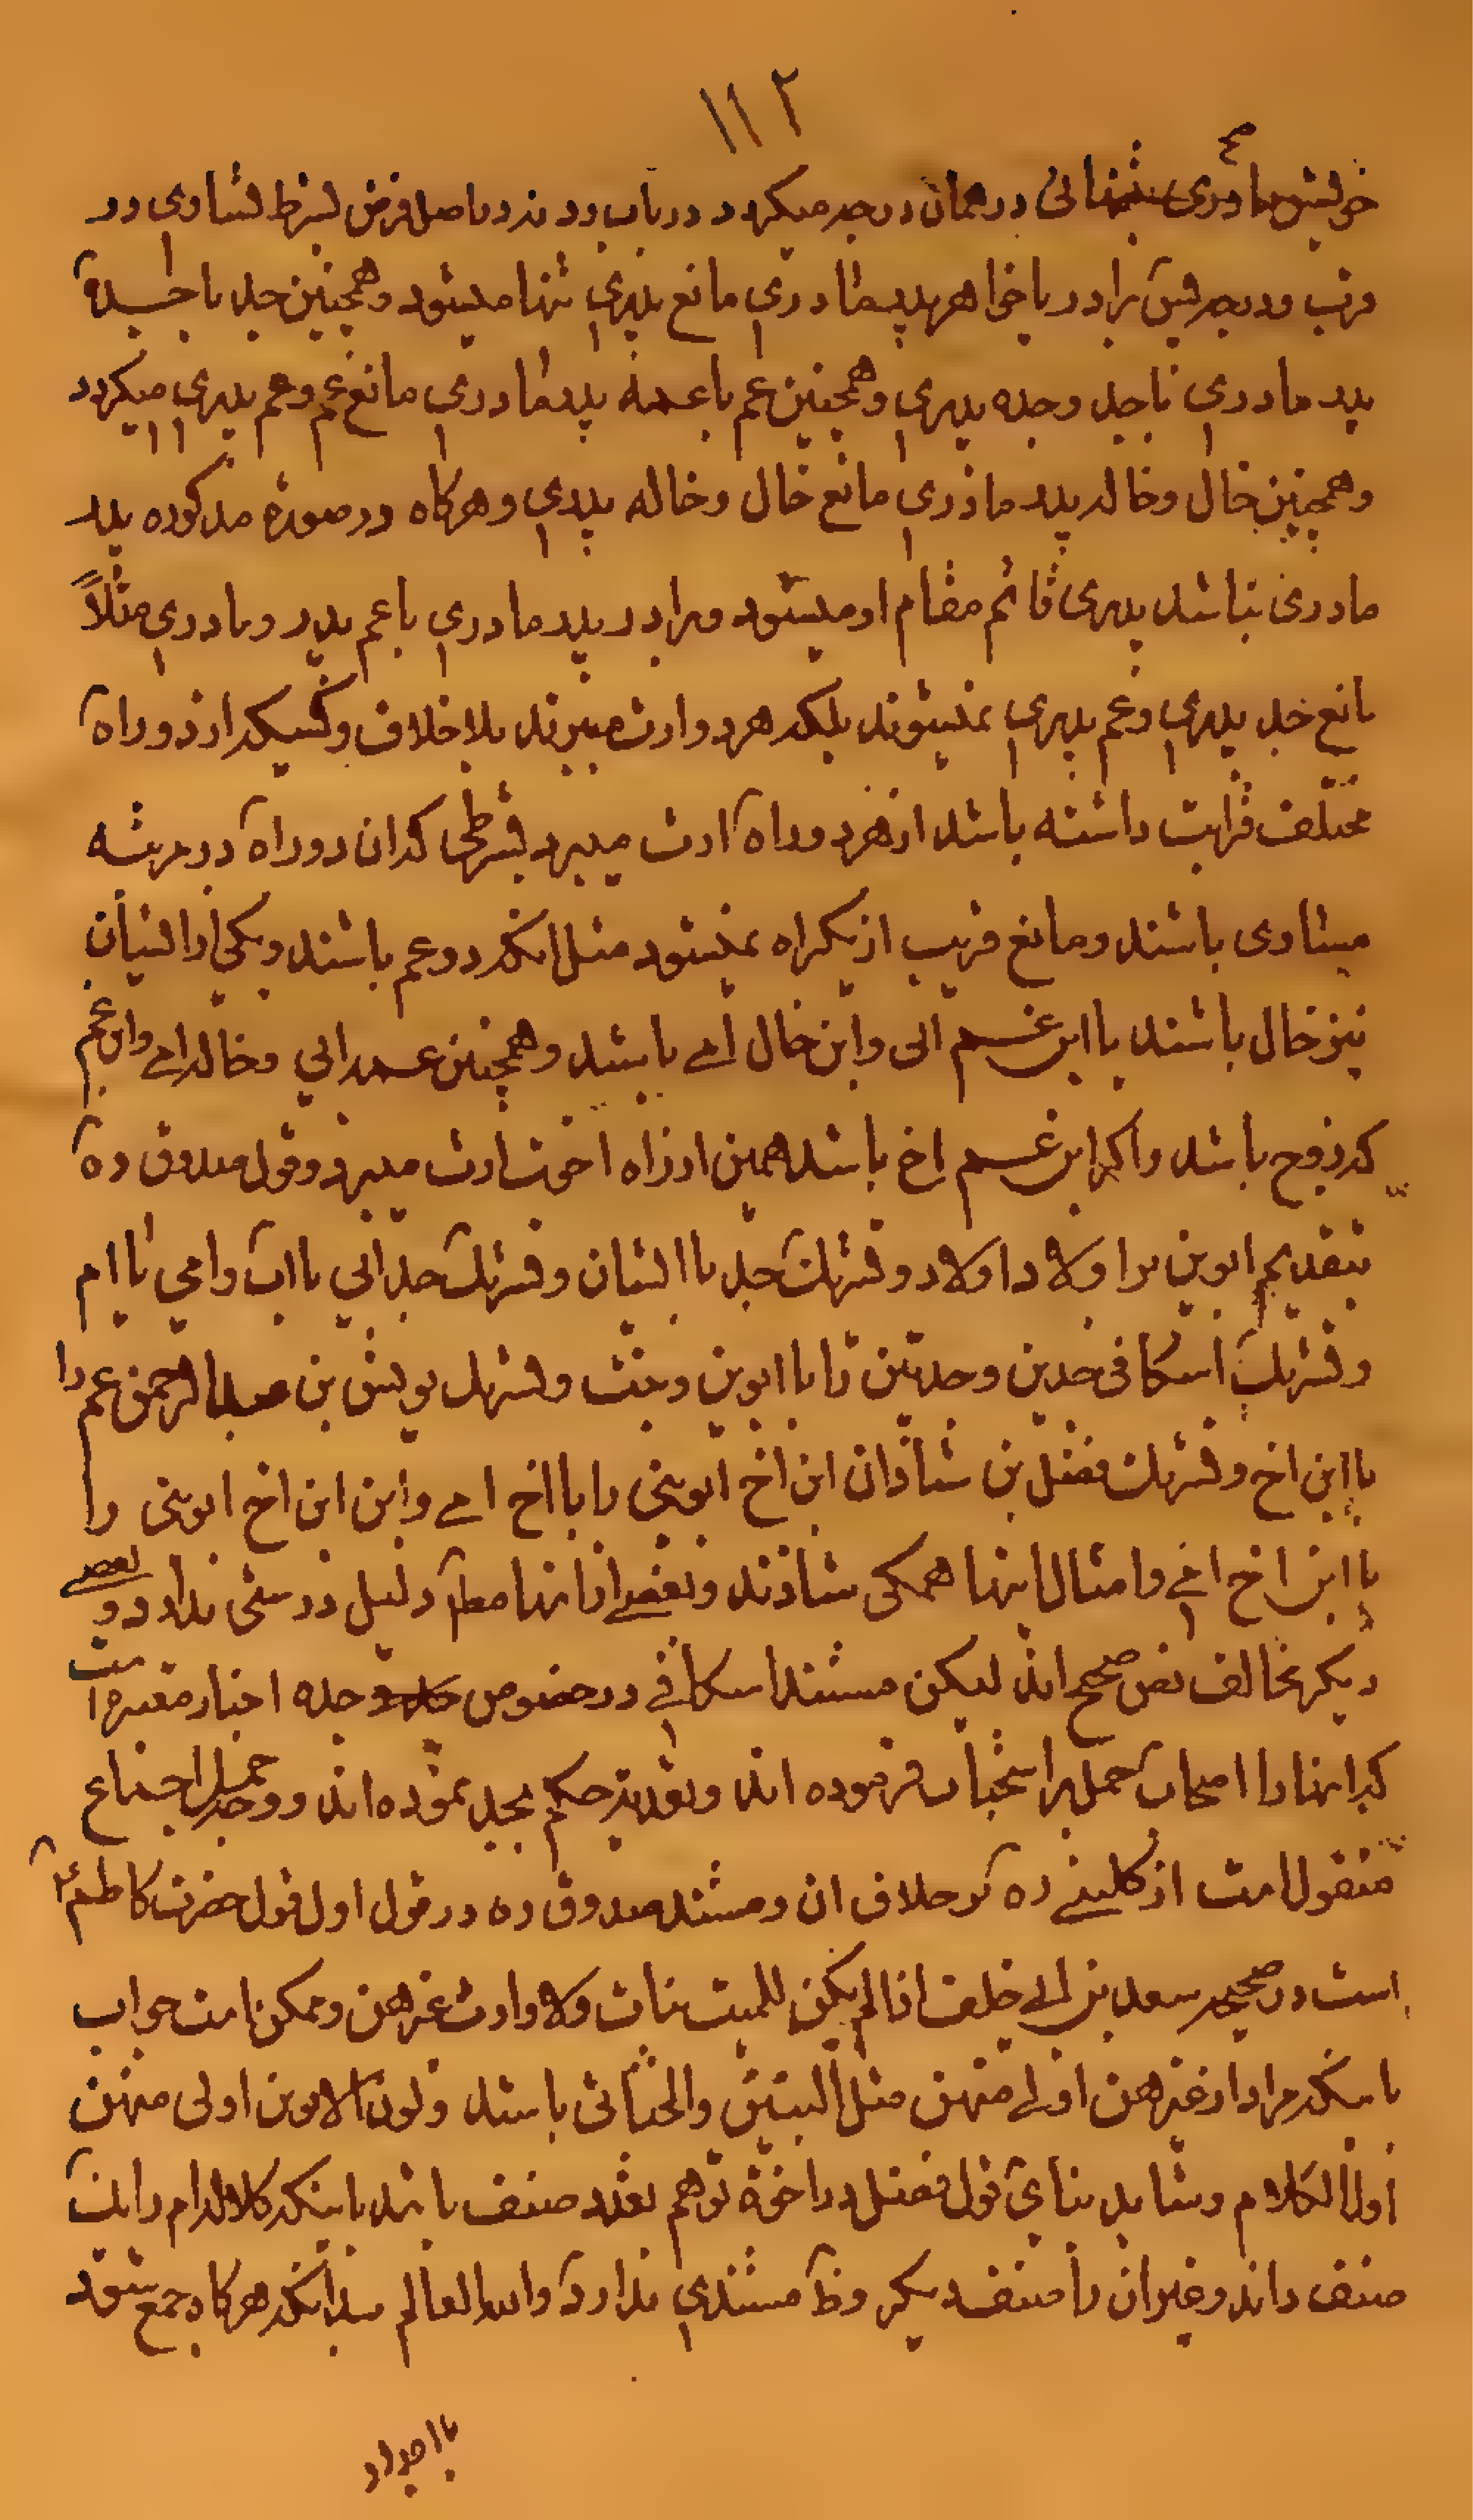 ١١٢
خویش مادری بتنهائی در همان درجه میکردد در باب رد نه در اصل فرض بشرط تساوی در
قرب و درجه پس برادر یا خواهر پدر مادری مانع پدری تنها میشود و همچنین جد یا جده
پدر مادری با جد و جده پدری و همچنین عم یا عمه پدر مادری مانع عم و عم پدری میکردد
و همچنین خال و خاله پدر مادری مانع خال و خاله پدری و هرکاه در صورة مذکوره پدر
مادری نباشد پدری قائم مقام او میشود و برادر پدر مادری با عم پدر و مادری مثلاً
مانع جد پدری و عم پدری نمیشوند بلکه هر دو ارث میبرند بلا خلاف و کسیکه از دو راه
مختلف قرابت داشته باشد از هر دو راه ارث میبرد بشرطی که ان دو راه در مرتبه
مساوی باشند و مانع قریب از یکراه نمیشود مثل انکه دو عم باشند و یکی از ایشان
نیز خال باشند یا ابن عم ابی و ابن خال امی باشد و همچنین عمه ابی و خاله امی و ابن عم
که زوج باشد و اکر ابن عم اخ باشد همین از راه اخوت ارث میبرد و قول صدوق ره
بتقدیم ابوین بر اولاد اولاد و تشریک جد با ایشان و تشریک جد ابی با اب و امی با ام
و تشریک اسکافی جدین و جدتین را با ابوین و بنت و تشریک یونس بن عبدالرحمن عم را
با ابن اخ و تشریک فضل بن شاذان ابن اخ ابوینی را با اخ امی و ابن ابن اخ ابوینی را
با ابن اخ امی و امثال اینها همکی شاذند و بعضی از اینها مطلقا دلیل درستی ندارد و بعضی
دیکر مخالف نص صحیح اند لیکن مستند اسکافی در خصوص جد و جده اخبار معتبره است
که اینها را اصحاب حمل بر استحباب فرموده اند و بعد بتر حکم بجد نموده اند و وجه حمل اجماع
منقول است از کلینی ره بر خلاف ان و مستند صدوق ره در قول اول قول حضرت کاظم ع
است در صحیحه سعد بن ابی خلف اذا لم یکن للمیت بنات ولا وارث غیرهن و ممکن است جواب
باینکه مراد از غیرهن اولی منهن مثل البنین والخناثی باشد و لون الابوین اولی منهن
اول الکلام و شاید بنای قول فضل در اخوة توهم تعدد صنف باشد باینکه کلاله ام را یک
صنف داند و غیر ان را صنف دیکر و ظ مستندی ندارد والله العالم بدانکه هرکاه جمع شود
با اجداد